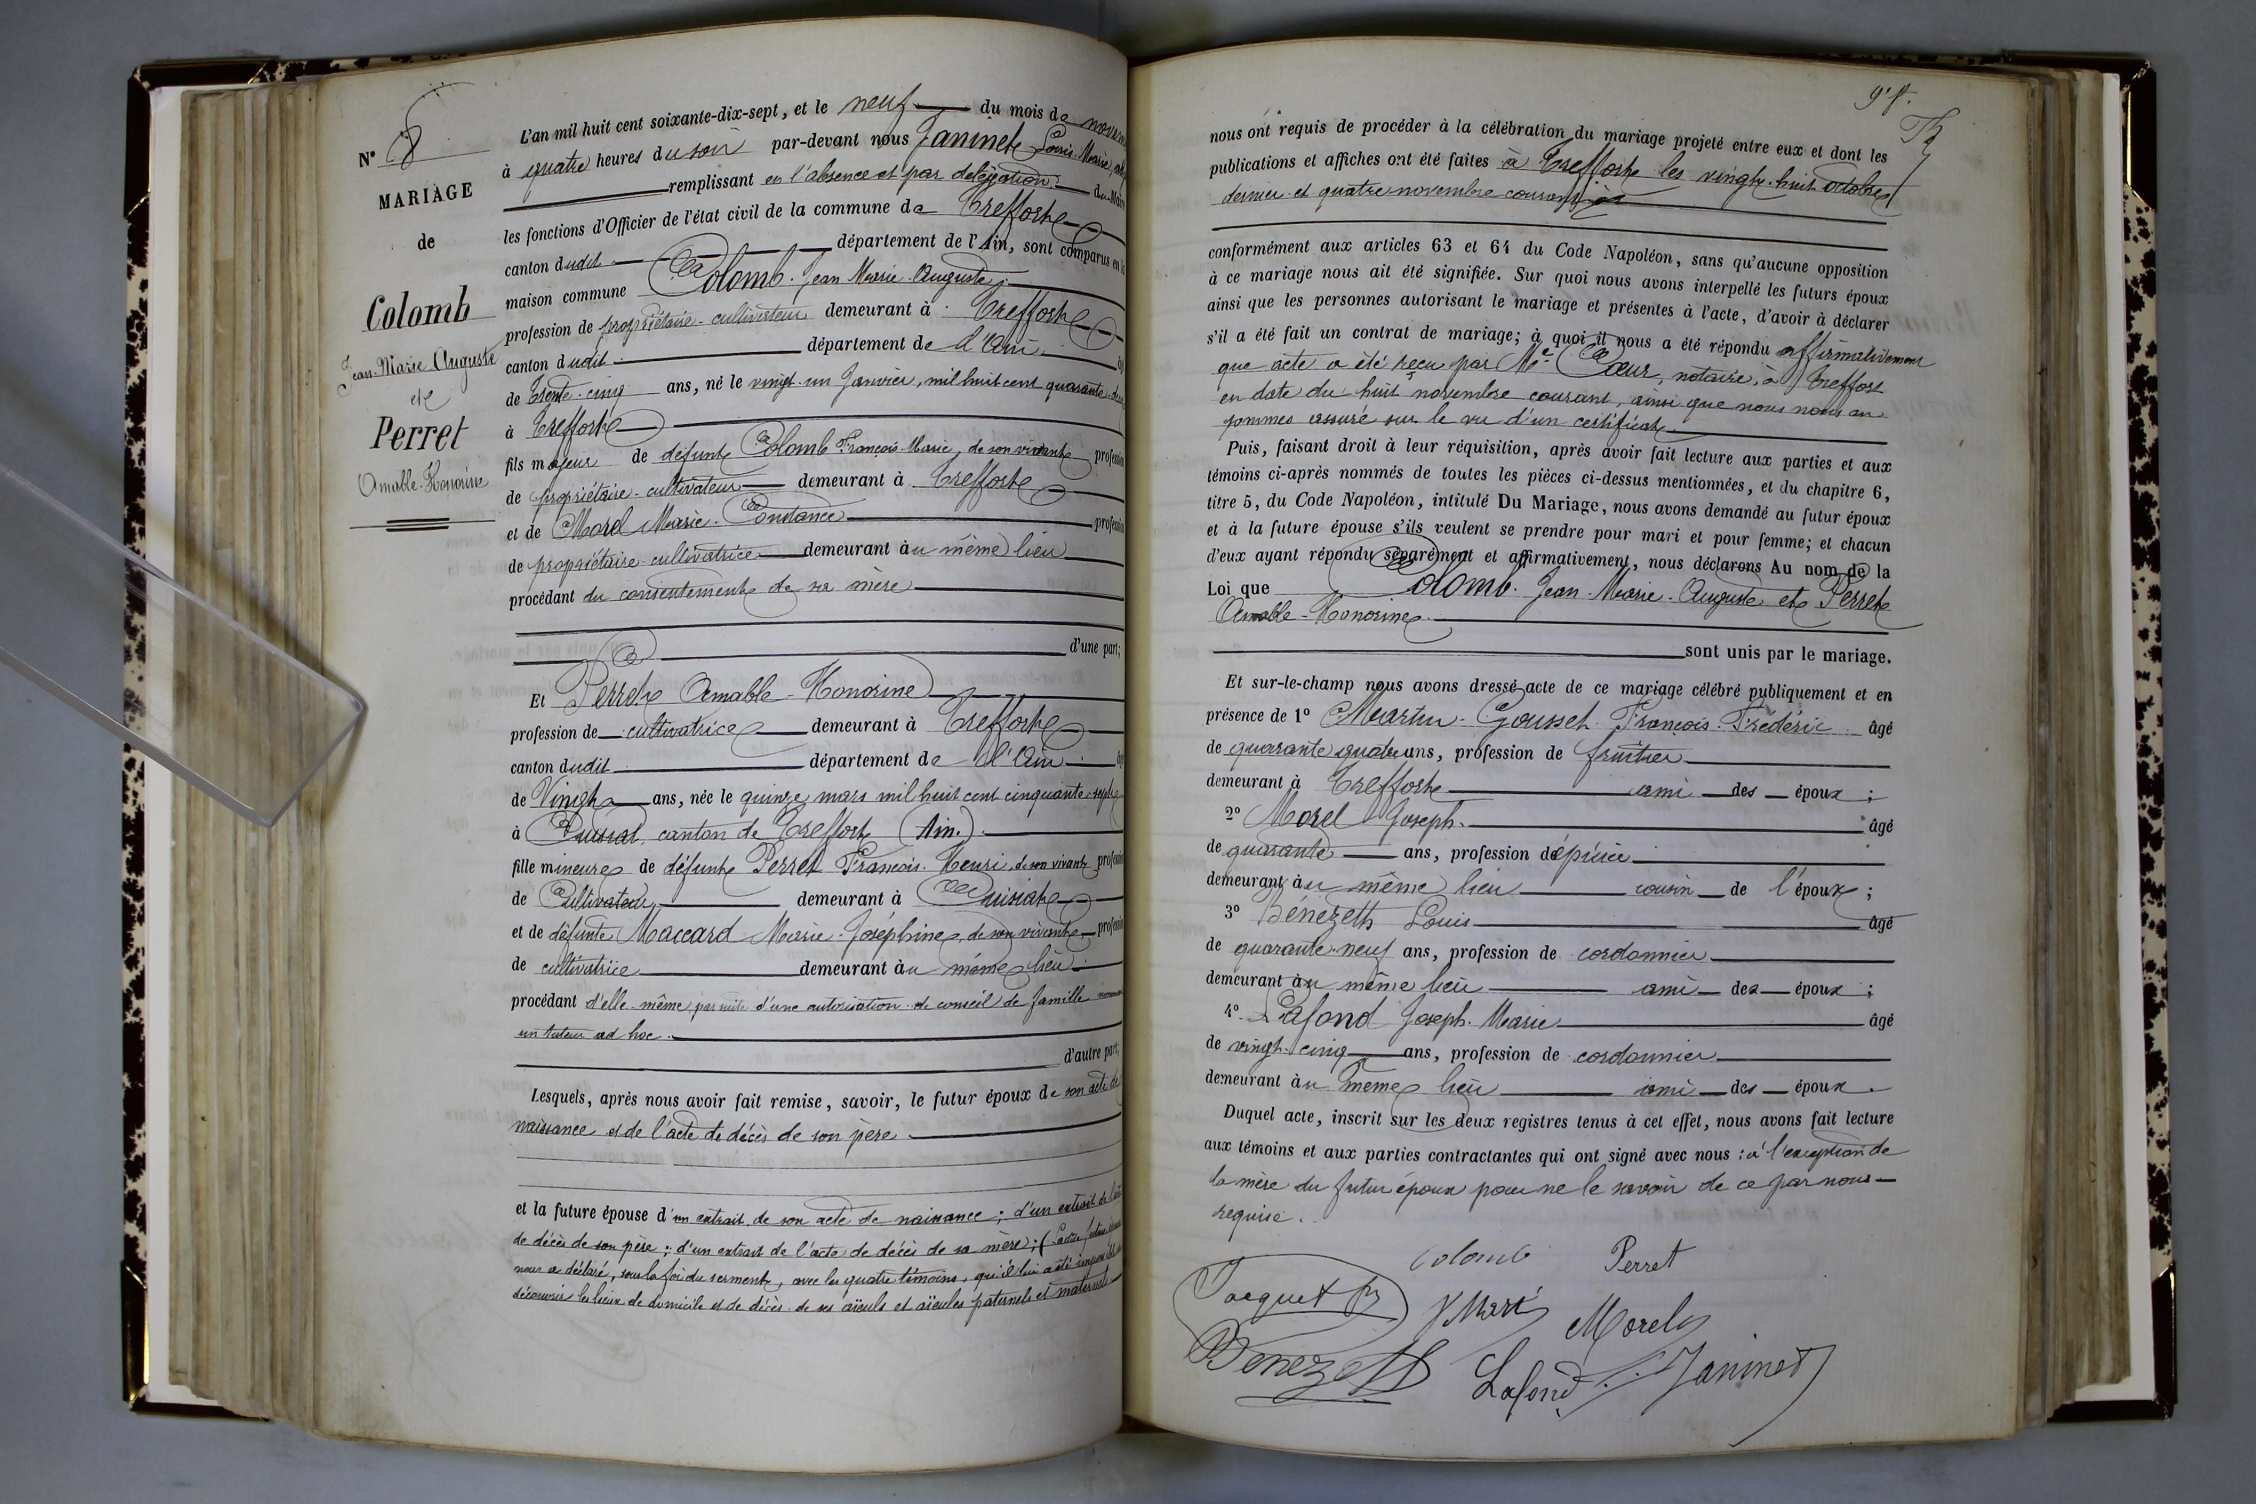 N° 8
MARIAGE
de
Colomb
Jean-Marie Auguste
et
Perret
Amable-Honorine
L'an mil huit cent soixante-dix-sept, et le neuf du mois de
à quatre heures du soir par-devant nous Janinet Louis Marie,
remplissant en l'absence et par délégation du Maire
les fonctions d'Officier de l'état civil de la commune de Treffort
canton dudit département de l'Ain, sont comparus en la
maison commune Colomb Jean Marie Auguste
profession de propriétaire-cultivateur demeurant à Treffort
canton dudit département de l'Ain
de trente-cinq ans, né le vingt-un Janvier, mil huit cent quarante-deux
à Treffort
fils majeur de défunt Colomb François-Marie, de son vivant profession
de propriétaire-cultivateur demeurant à Treffort
et de Morel Marie-Constance profession
de propriétaire-cultivatrice demeurant au même lieu
procédant du consentement de sa mère
d'une part;
Et Perret Amable-Honorine
profession de cultivatrice demeurant à Treffort
canton dudit département de l'Ain
de Vingt ans, née le quinze mars mil huit cent cinquante-sept
à Cuisiat, canton de Treffort (Ain.)
fille mineure de défunt Perret François-Henri, de son vivant profession
de Cultivateur demeurant à Cuisiat
et de défunte Maccard Marie-Joséphine, de son vivant profession
de cultivatrice demeurant au même lieu
procédant d'elle-même par suite d'une autorisation de conseil de famille
un tuteur ad hoc.
d'autre part;
Lesquels, après nous avoir fait remise, savoir, le futur époux de son acte de
naissance et de l'acte de décès de son père.
et la future épouse d'un extrait de son acte de naissance; d'un extrait de l'acte
de décès de son père; d'un extrait de l'acte de décès de sa mère; (Ladite future épouse
nous a déclaré, sous la foi du serment, avec les quatre témoins, qu'il lui a été impossible de
découvrir les lieux de domicile et de décès de ses aïeuls et aïeules paternels et maternels
nous ont requis de procéder à la célébration du mariage projeté entre eux et dont les
publications et affiches ont été faites à Treffort les vingt-huit octobre
dernier et quatre novembre courant
conformément aux articles 63 et 64 du Code Napoléon, sans qu'aucune opposition
à ce mariage nous ait été signifiée. Sur quoi nous avons interpellé les futurs époux
ainsi que les personnes autorisant le mariage et présentes à l'acte, d'avoir à déclarer
s'il a été fait un contrat de mariage; à quoi il nous a été répondu affirmativement
que acte a été reçu par Me Cœur, notaire, à Treffort
en date du huit novembre courant, ainsi que nous nous en
sommes assuré sur le vu d'un certificat
Puis, faisant droit à leur réquisition, après avoir fait lecture aux parties et aux
témoins ci-après nommés de toutes les pièces ci-dessus mentionnées, et du chapitre 6,
titre 5, du Code Napoléon, intitulé Du Mariage, nous avons demandé au futur époux
et à la future épouse s'ils veulent se prendre pour mari et pour femme; et chacun
d'eux ayant répondu séparément et affirmativement, nous déclarons Au nom de la
Loi que Colomb Jean-Marie-Auguste et Perret
Amable-Honorine
sont unis par le mariage.
Et sur-le-champ nous avons dressé acte de ce mariage célébré publiquement et en
présence de 1° Martin-Gousset François-Frédéric âgé
de quarante quatre ans, profession de fruitier
demeurant à Treffort ami des époux;
2° Morel Joseph. âgé
de quarante ans, profession d'épicier
demeurant au même lieu cousin de l'époux;
3° Bénezeth Louis âgé
de quarante-neuf ans, profession de cordonnier
demeurant au même lieu ami des époux;
4° Lafond Joseph-Marie âgé
de vingt-cinq ans, profession de cordonnier
demeurant au même lieu ami des époux.
Duquel acte, inscrit sur les deux registres tenus à cet effet, nous avons fait lecture
aux témoins et aux parties contractantes qui ont signé avec nous: à l'exception de
la mère du futur époux pour ne le savoir de ce par nous
requise.
Colomb Perret
Jacquet
Morel
Benezeth
Lafond Janinet